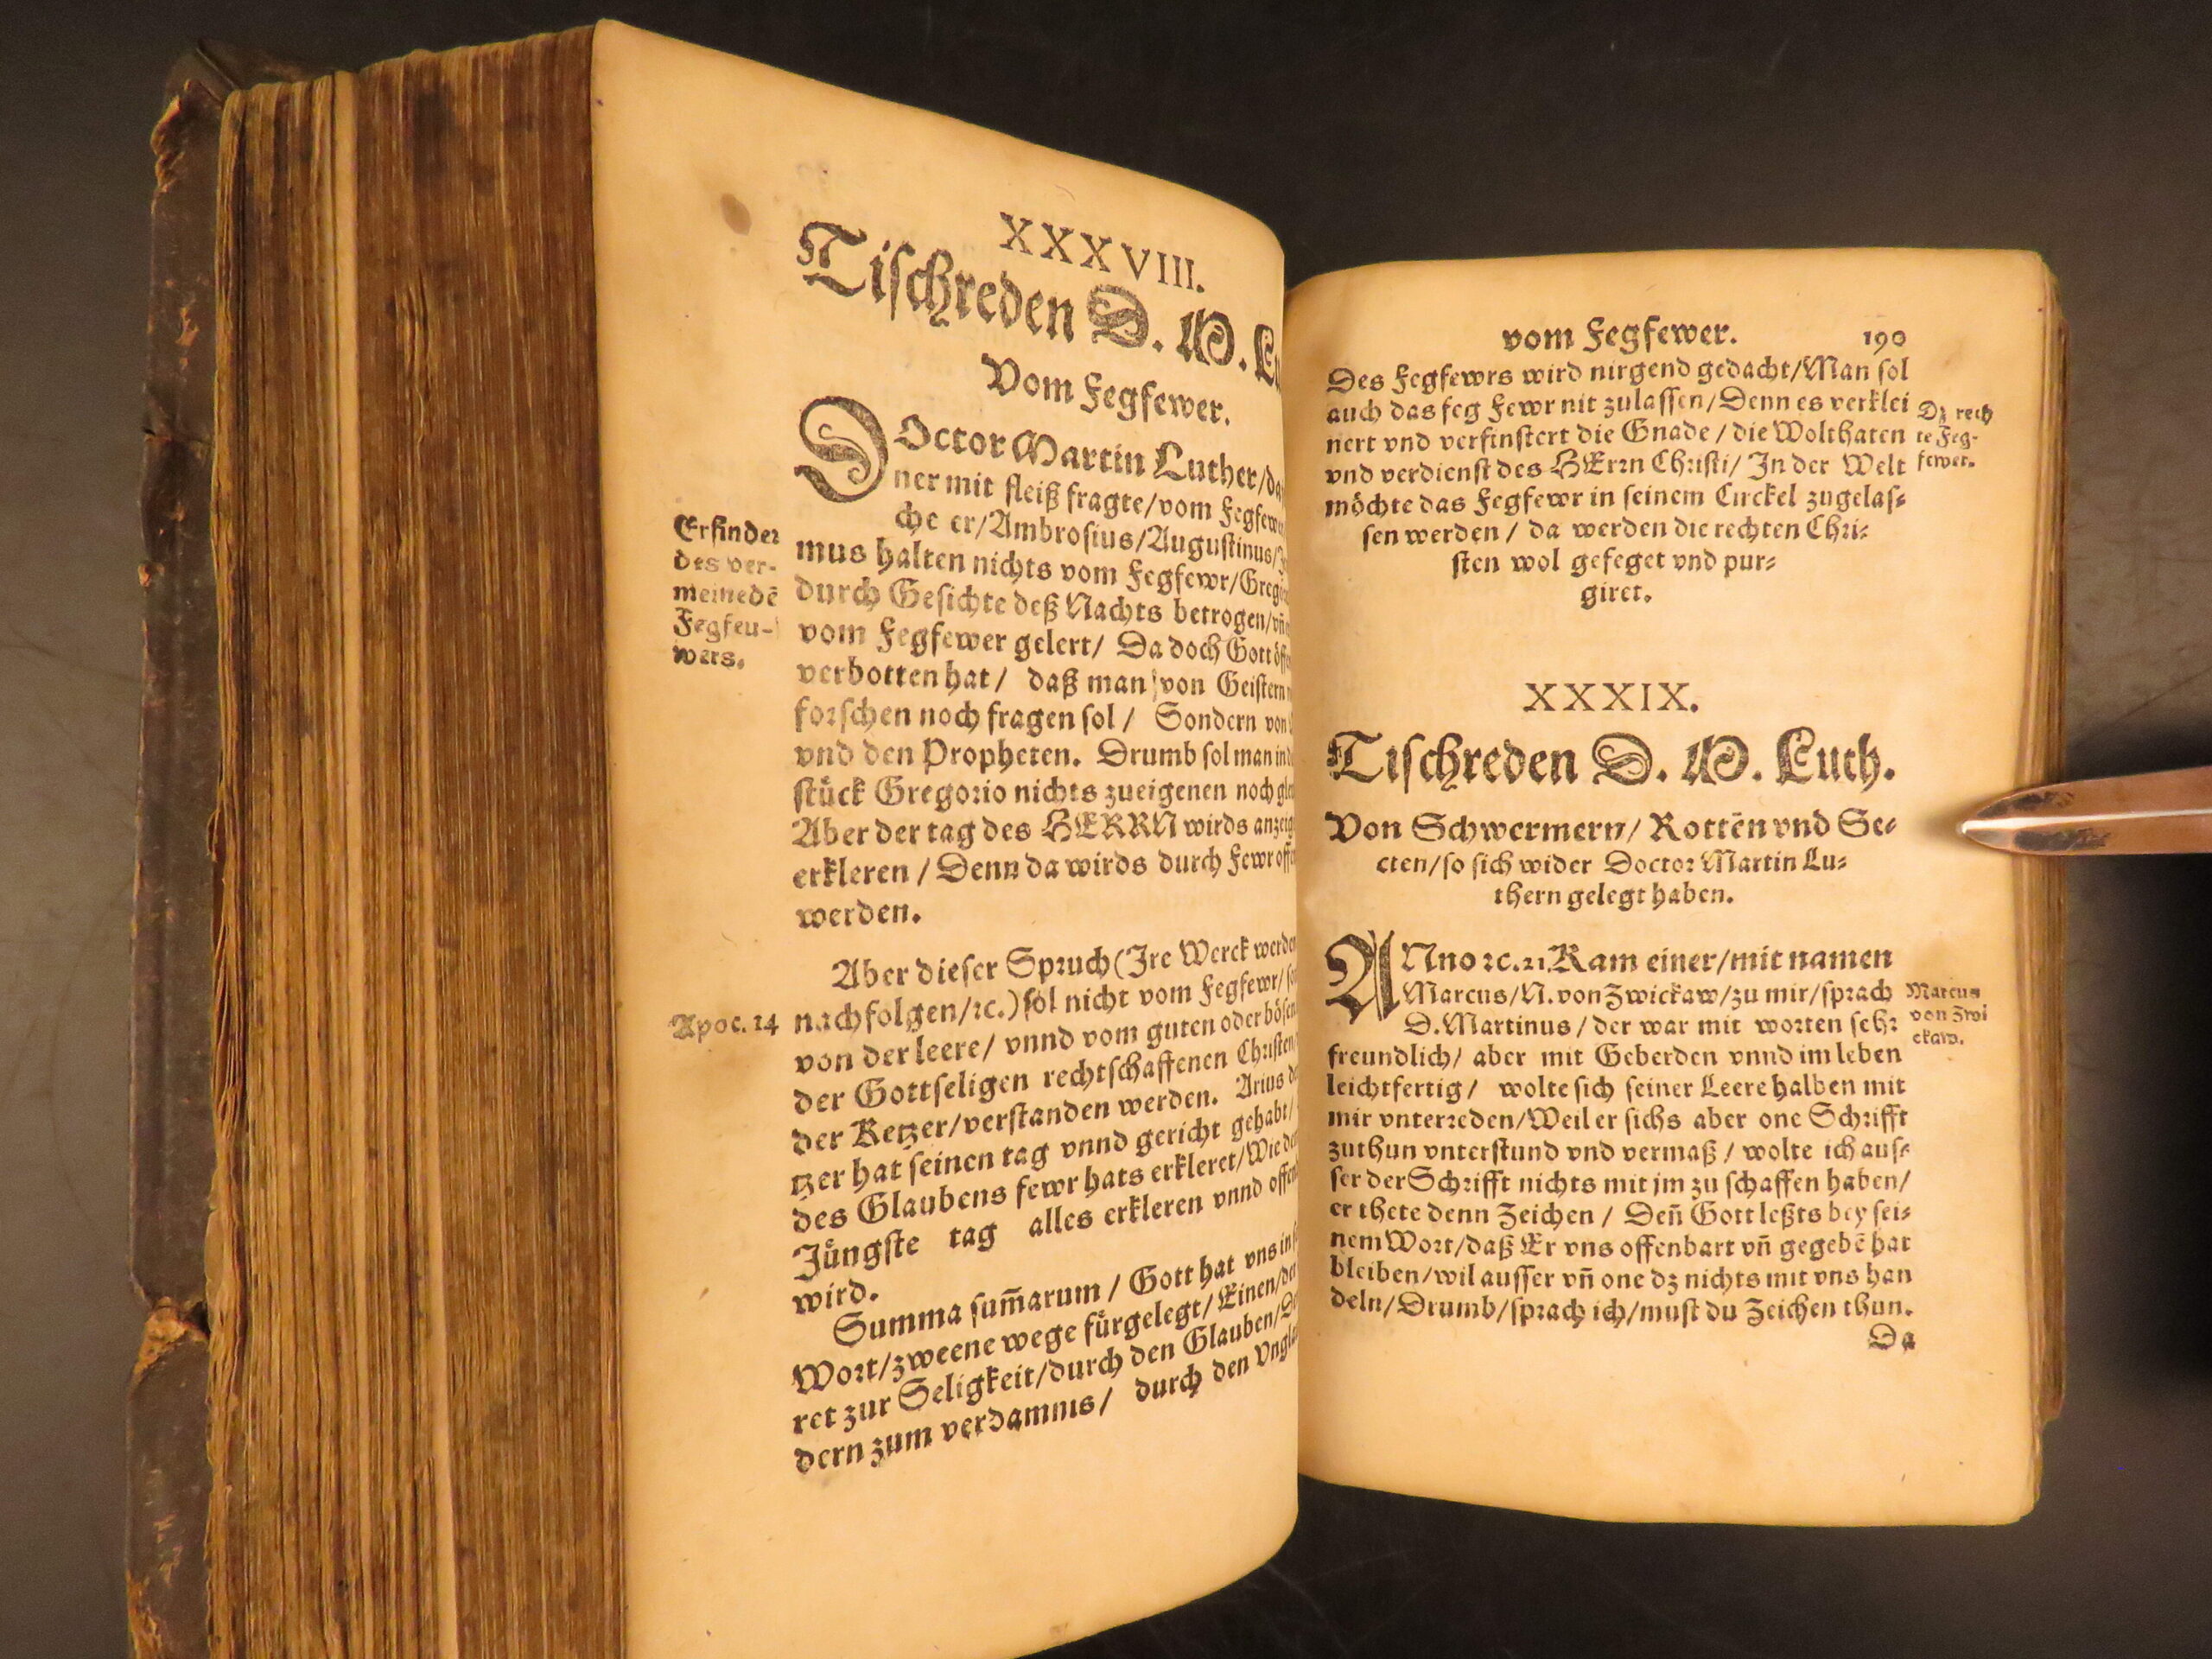 XXXVIII.
Tischreden D. M.
Vom Fegfewer.
DOctor Martin Luther/
ner mit fleiß fragte/vom
che er/Ambrosius/Augustinus/
mus halten nichts vom Fegfewr/
durch Gesichte deß Nachts betrogen/
vom Fegfewer gelert/ Da doch Gott
verbotten hat/ daß man von
forschen noch fragen sol/ Sondern von
vnd den Propheten. Drumb sol man
stück Gregorio nichts zueigenen noch
Aber der tag des HERRN wirds
erkleren/ Denn da wirds durch Fewr
werden.
Aber dieser Spruch (Ire Werck
nachfolgen/ꝛc.) sol nicht vom Fegfewr/
von der leere/ vnnd vom guten oder
der Gottseligen rechtschaffenen
der Ketzer/verstanden werden. Arius
tzer hat seinen tag vnnd gericht gehabt/
des Glaubens fewr hats erkleret/Wie
Jüngste tag alles erkleren vnnd
wird.
Summa sum̃arum/ Gott hat vns in
Wort/zweene wege fürgelegt/Einen/
ret zur Seligkeit/durch den Glauben/
dern zum verdamnis/ durch den
Erfinder
des ver-
meinedē
Fegfeu-
wers.
Apoc. 14
vom Fegfewer. 190
Des Fegfewrs wird nirgend gedacht/Man sol
auch das feg Fewr nit zulassen/Denn es verklei
nert vnd verfinstert die Gnade/die Wolthaten
vnd verdienst des HErrn Christi/ In der Welt
möchte das Fegfewr in seinem Circkel zugelas-
sen werden/ da werden die rechten Chri-
sten wol gefeget vnd pur-
giret.
Dz rech
te Feg-
fewer.
XXXIX.
Tischreden D. M. Luth.
Von Schwermern/ Rottēn vnd Se-
cten/so sich wider Doctor Martin Lu-
thern gelegt haben.
ANno ꝛc. 21. Kam einer/mit namen
Marcus/N. von Zwickaw/zu mir/sprach
D. Martinus/der war mit worten sehr
freundlich/ aber mit Geberden vnnd im leben
leichtfertig/ wolte sich seiner Leere halben mit
mir vnterreden/Weil er sichs aber one Schrifft
zuthun vnterstund vnd vermaß/ wolte ich aus-
ser der Schrifft nichts mit jm zu schaffen haben/
er thete denn Zeichen/ Deñ Gott leßts bey sei-
nem Wort/daß Er vns offenbart vñ gegebē hat
bleiben/wil ausser vñ one dz nichts mit vns han
deln/Drumb/sprach ich/must du Zeichen thun.
Da
Marcus
von Zwi
ckaw.